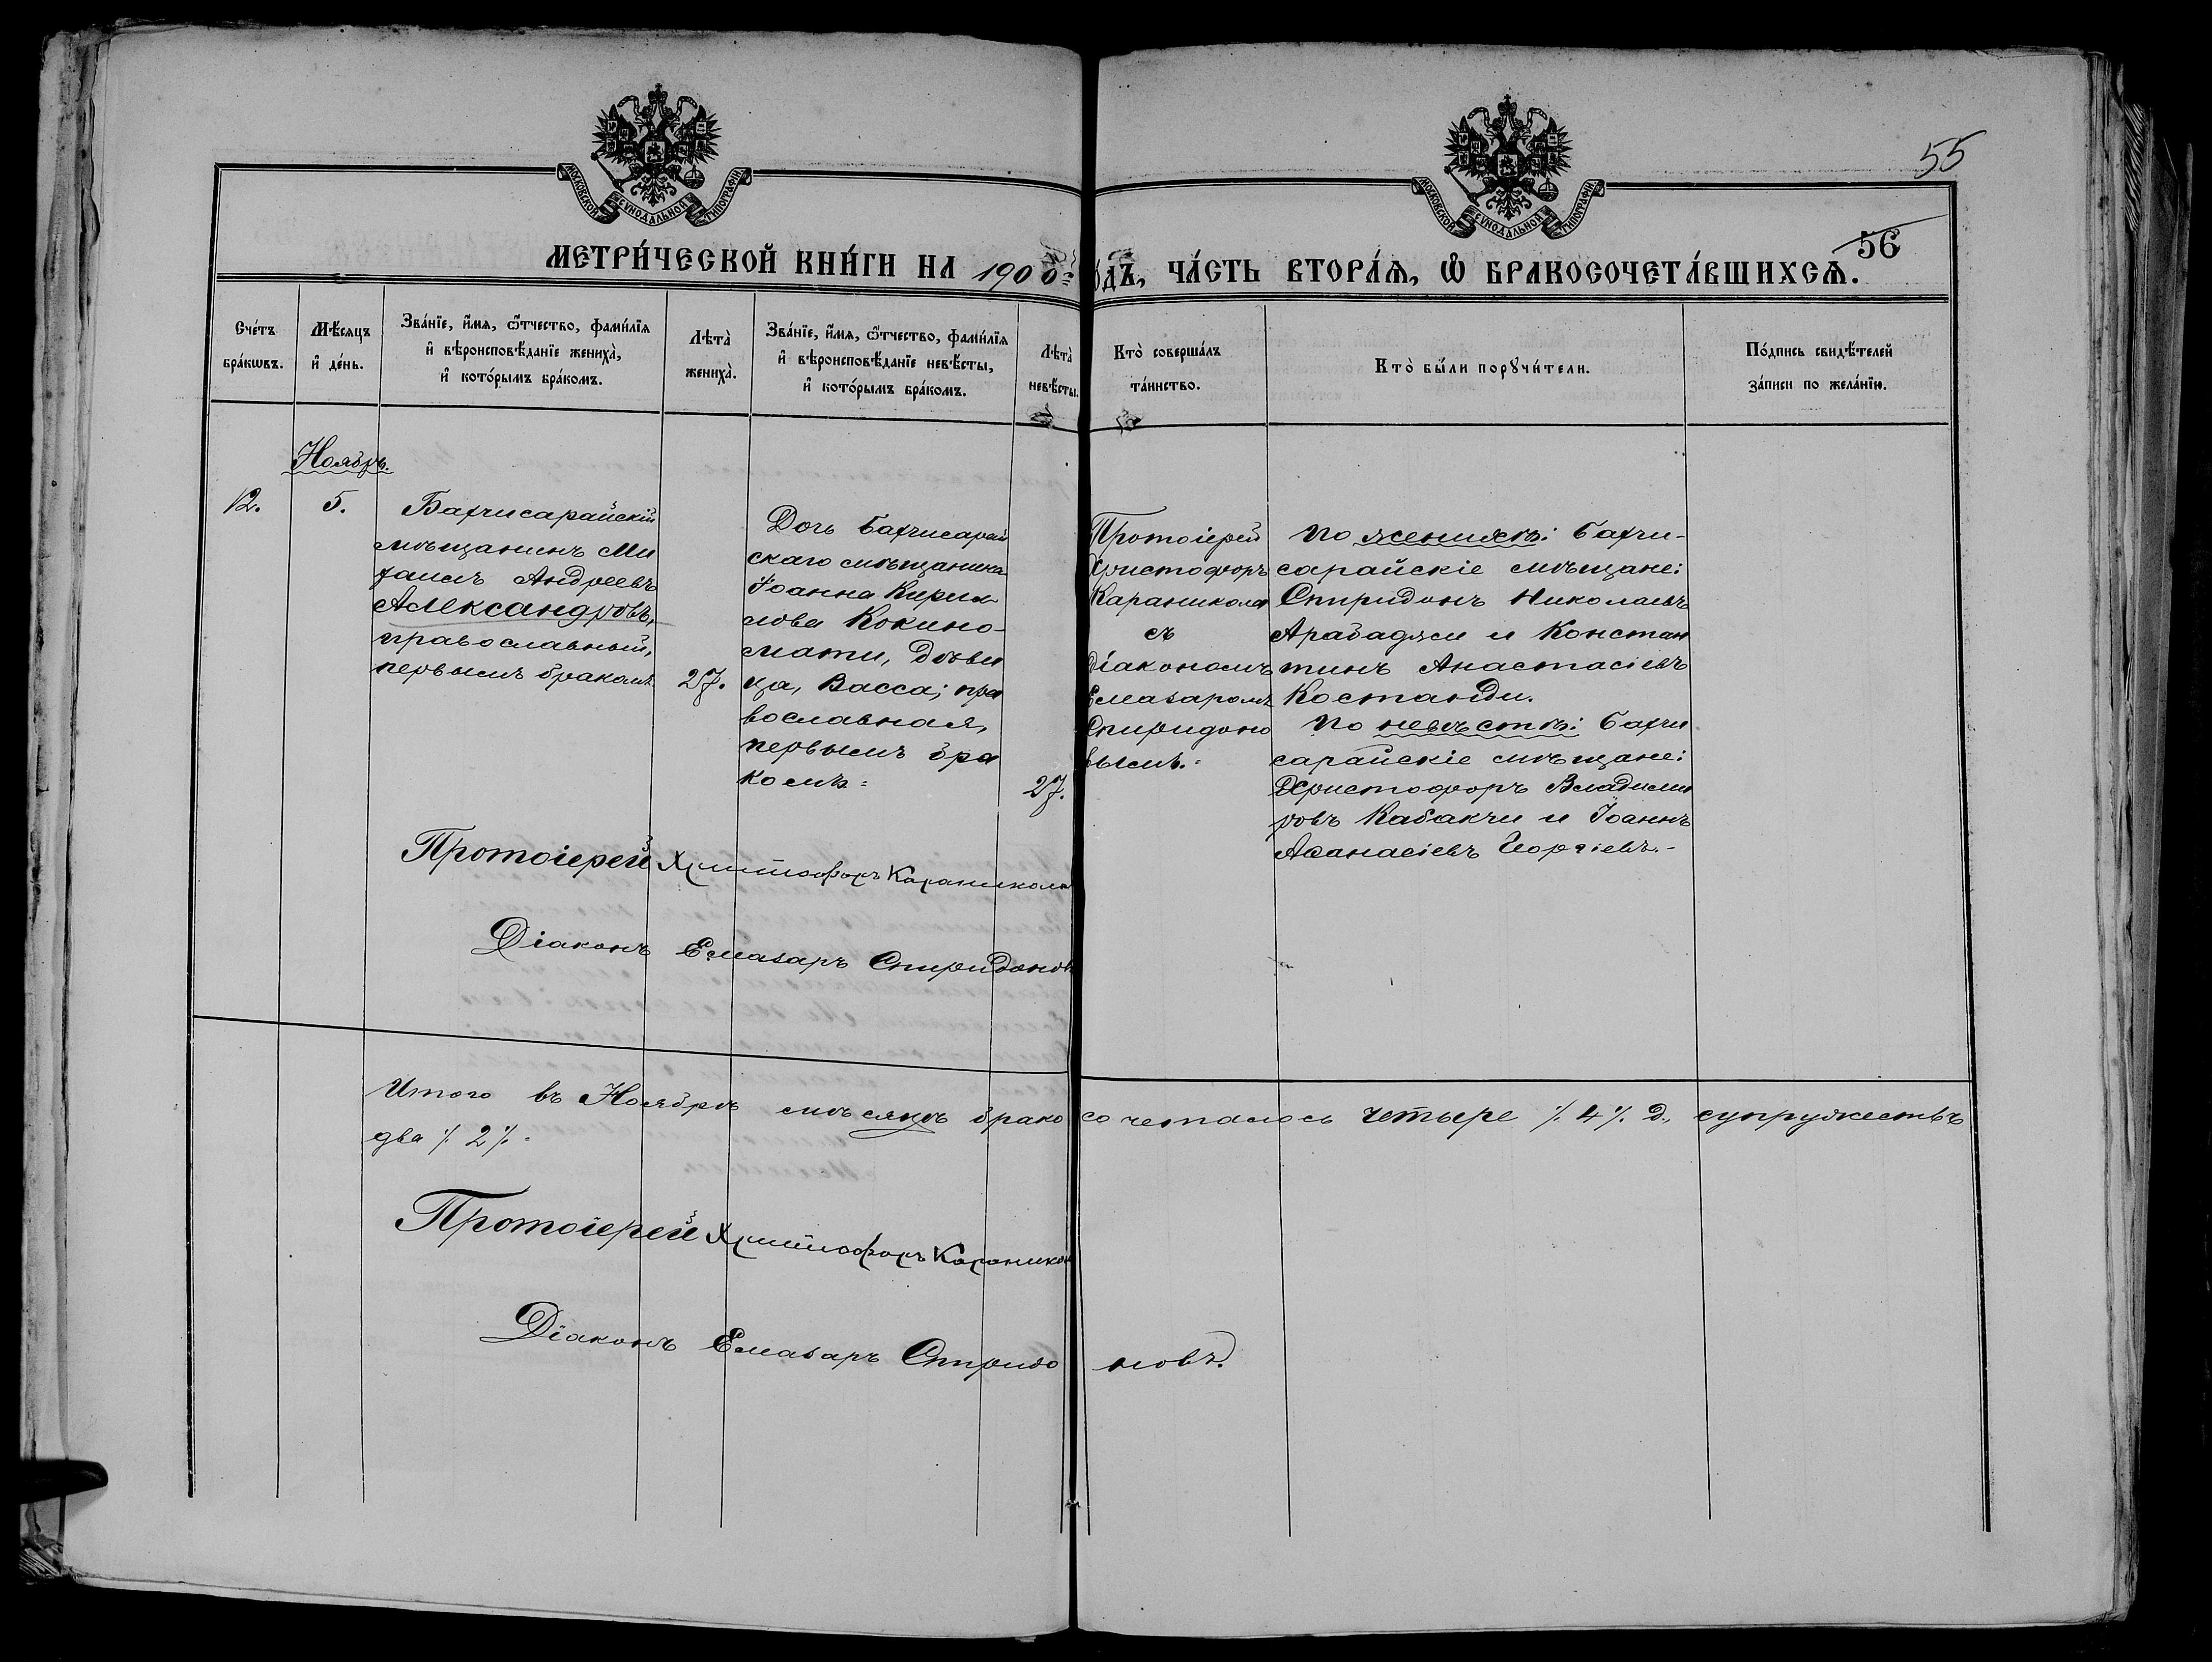 55
МОСКОВСКОЙ СѴНОДАЛЬНОЙ ТИПОГРАФІИ
МОСКОВСКОЙ СѴНОДАЛЬНОЙ ТИПОГРАФІИ
56
МЕТРИ́ЧЕСКОЙ КНИ́ГИ НА 1900 ОДЪ, ЧА́СТЬ ВТОРА́Ѧ, Ѡ҆ БРАКОСОЧЕТА́ВШИХСѦ.
Сче́тъ
бра́кѡвъ.
Мѣ́сяцъ
и҆ де́нь.
Зва́нїе, и҆́мя, ѻ҆́тчество, фами́лїя
и҆ вѣроисповѣ́данїе жениха̀,
и҆ кото́рымъ бра́комъ.
Лѣта̀
жениха̀.
Зва́нїе, и҆́мя, ѻ҆́тчество, фами́лїя
и҆ вѣроисповѣ́данїе невѣ́сты,
и҆ кото́рымъ бра́комъ.
Лѣта̀
невѣ́сты.
Кто̀ соверша́лъ
та́инство.
Кто̀ бы́ли порꙋчи́тели.
По́дпись свидѣ́телей
за́писи по жела́нїю.
Ноябрь.
12.
5.
Бахчисарайскій
мѣщанинъ Ми
хаилъ Андреевъ
Александровъ,
православный,
первымъ бракомъ.
27.
Дочь Бахчисарай
скаго мѣщанина
Іоанна Кирил
лова Кокино-
мати, дѣви
ца, Васса; пра
вославная,
первымъ бра
комъ=
27.
Протоіерей
Христофоръ
Караникола
съ
діакономъ
Елеазаромъ
Спиридоно
вымъ.=
По женихѣ: Бахчи-
сарайскіе мѣщане:
Спиридонъ Николаевъ
Арабаджи и Констан
тинъ Анастасіевъ
Костанди.
По невѣстѣ: Бахчи
сарайскіе мѣщане:
Христофоръ Владими
ровъ Кабакчи и Іоаннъ
Аѳанасіевъ Чоргіевъ.-
Протоіерей Христофоръ Караникола
Діаконъ Елеазаръ Спиридоновъ
Итого въ Ноябрѣ мѣсяцѣ брако сочеталось четыре ٪ 4 ٪. д., супружествъ
два ٪ 2 ٪.
Протоіерей Христофоръ Караникол
Діаконъ Елеазаръ Спиридо новъ.